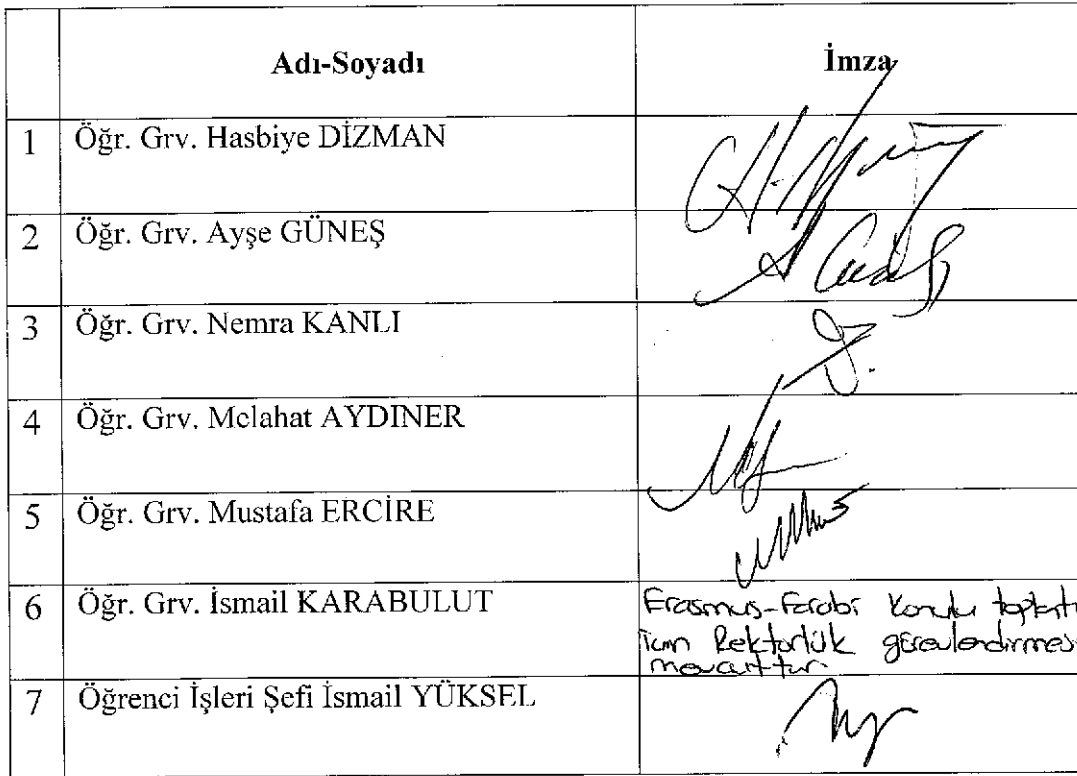 Adı-Soyadı İmza
1 Öğr. Grv. Hasbiye DİZMAN
2 Öğr. Grv. Ayşe GÜNEŞ
3 Öğr. Grv. Nemra KANLI
4 Öğr. Grv. Melahat AYDINER
5 Öğr. Grv. Mustafa ERCİRE
6 Öğr. Grv. İsmail KARABULUT
Erasmus-Farabi Konulu toplantı
için Rektörlük görevlendirmesi
mevcuttur.
7 Öğrenci İşleri Şefi İsmail YÜKSEL